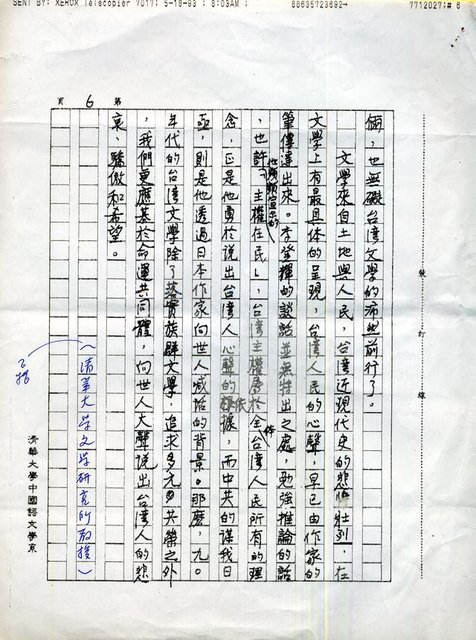 SENT BY: XEROX Telecopier 7017; 5-18-93 ; 8:03AM ;
88635723692→
7712027;# 6
第 6 頁
裝訂線
倆，也無礙台灣文學的前行了。
文學來自土地與人民，台灣近現代史的悲壯列，在
文學上有最具體的呈現，台灣人民的心聲，早已由作家的
筆傳達出來。李登輝的談話並無特出之處，勉強推論的話
，也許他強調宣示的「主權在民」，台灣主權屬於全體台灣人民所有的理
念，正是他勇於說出台灣人心聲的依據，而中共的謀我日
亟，則是他透過日本作家向世人喊話的背景。那麼，九〇
年代的台灣文學除了落實族群文學，追求多元共榮之外
，我們更應基於命運共同體，向世人大聲說出台灣人的悲
哀、驕傲和希望。
（清華大學文學研究所教授）
清華大學中國語文學系